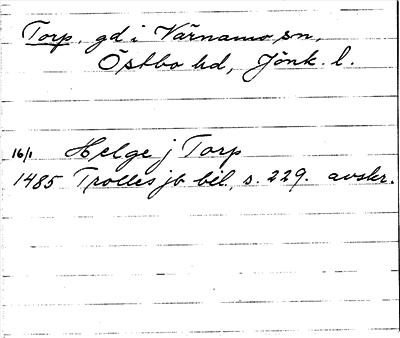 Torp, gd i Värnamo sn,
Östbo hd, Jönk. l.
16/1 Helge j Torp
1485 Trolles jb bil., s. 229. avskr.